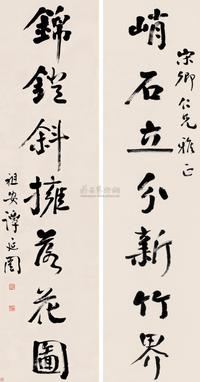 宋卿仁兄雅正
峭石立分新竹界
錦鎧斜擁落花圖
祖安譚延闓